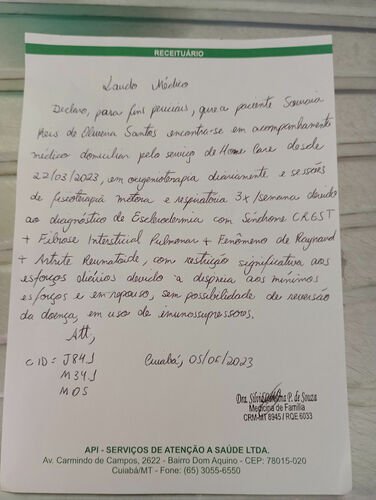 RECEITUÁRIO
Laudo Médico
Declaro, para fins periciais, que a paciente
Reis de Oliveira Santos encontra-se em acompanhamento
médico domiciliar pelo serviço de Home Care desde
22/03/2023, em oxigenioterapia diariamente e sessões
de fisioterapia motora e respiratória 3x/semana devido
ao diagnóstico de Esclerodermia com Síndrome CREST
+ Fibrose Intersticial Pulmonar + Fenômeno de Raynaud
+ Artrite Reumatoide, com restrição significativa aos
esforços diários devido a dispneia aos mínimos
esforços e em repouso, sem possibilidade de reversão
da doença, em uso de imunossupressores.
Att,
CID = J841
M341
M05
Cuiabá, 05/06/2023
Dra. P. de Souza
Medicina de Família
CRM-MT 8945 / RQE 6033
API - SERVIÇOS DE ATENÇÃO A SAÚDE LTDA.
Av. Carmindo de Campos, 2622 - Bairro Dom Aquino - CEP: 78015-020
Cuiabá/MT - Fone: (65) 3055-6550